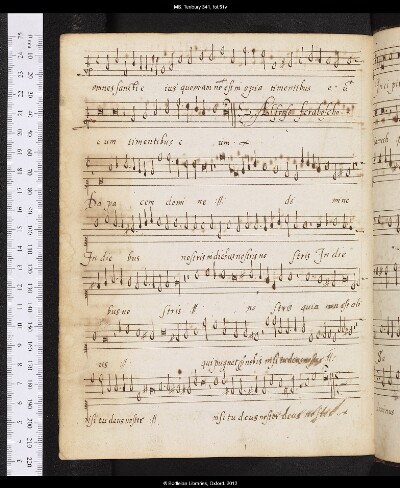 MS. Tenbury 341, fol. 51v
omnes sancti e ius quoniam no est in opia timentibus e
e um timentibus e um
Alfonso feraboscho
Da pa cem domi ne // do mine
In die bus nostris in diebus nostris no stris In die
bus no stris // no stris quia non est ali
us // qui pugnet p nobis nisi tu deus noster //
nisi tu deus noster // nisi tu deus noster deus noster
© Bodleian Libraries, Oxford, 2012